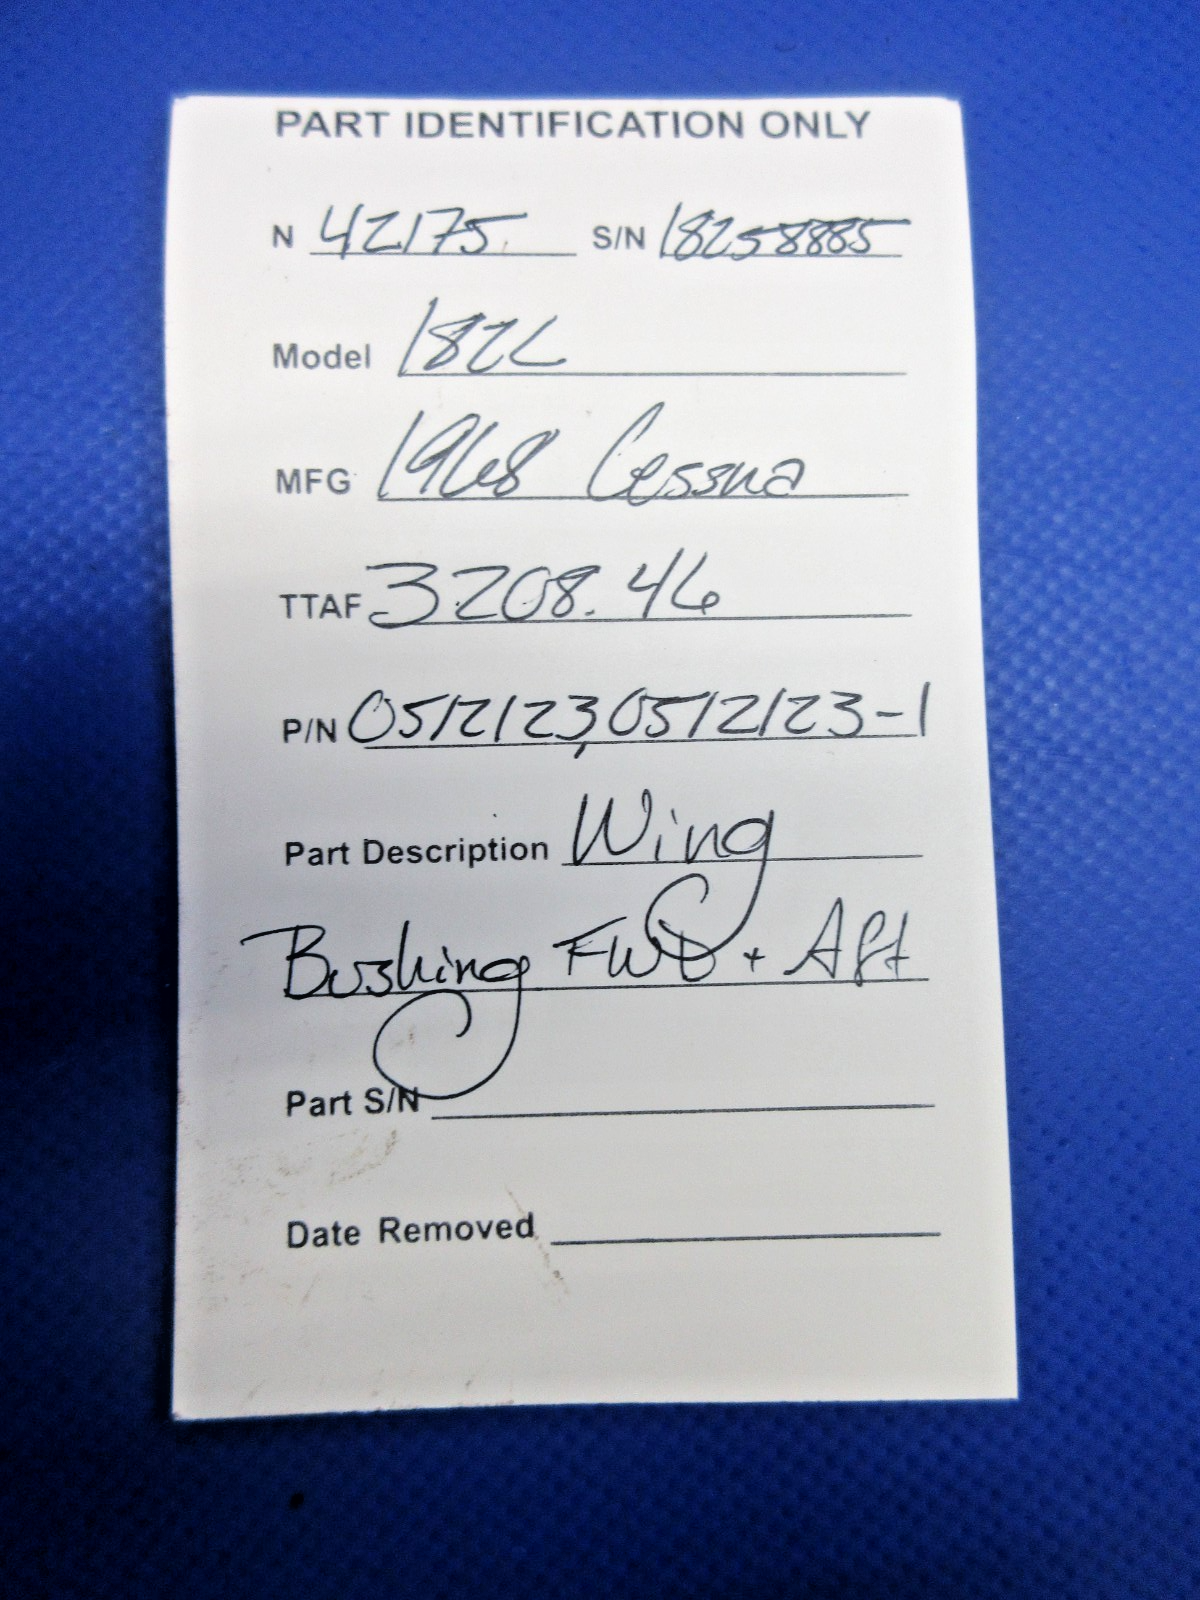 PART IDENTIFICATION ONLY
N 42175 S/N 18258885
Model 182L
MFG 1968 Cessna
TTAF 3208.46
P/N 0512123, 0512123-1
Part Description Wing
Bushing FWD + Aft
Part S/N
Date Removed